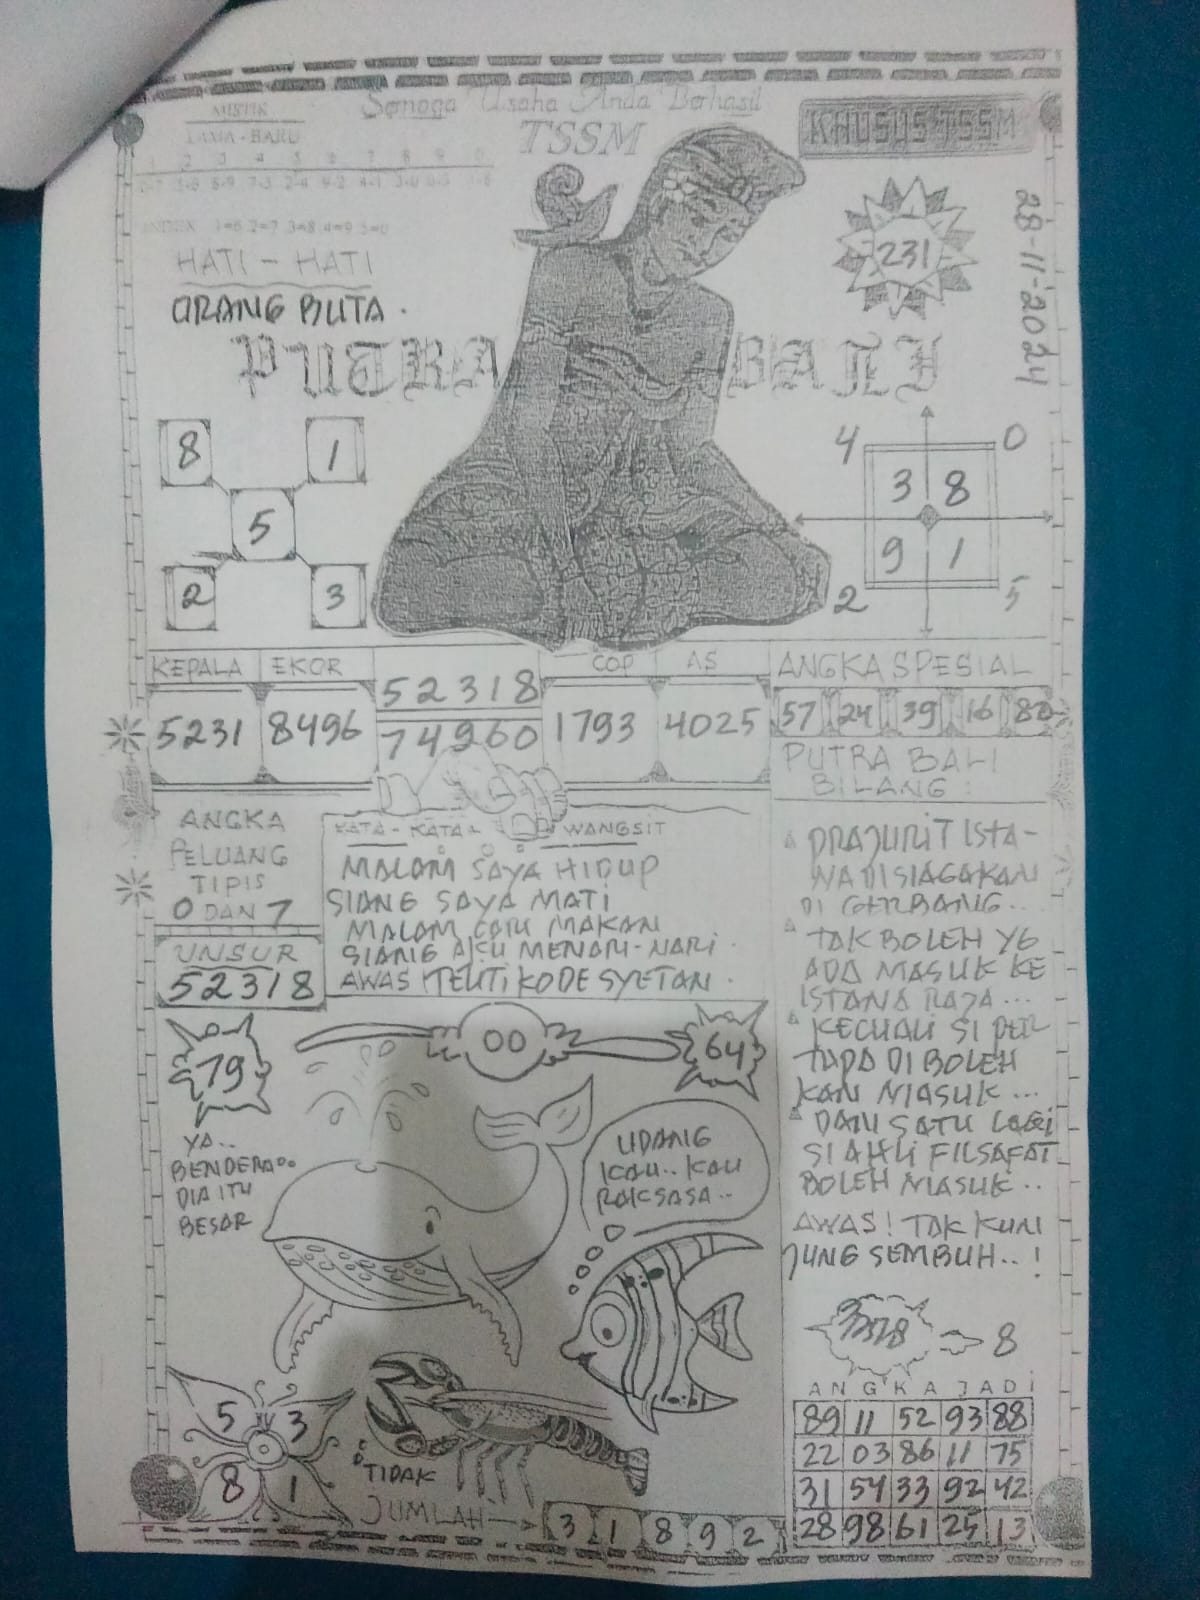 MISTIK
LAMA - BARU
Semoga Usaha Anda Berhasil
TSSM
KHUSUS TSSM
28-11-2024
INDEX 1=6 2=7 3=8 4=9 5=0
HATI - HATI
ORANG BUTA.
231
PUTRA BALI
8 1
5
2 3
4 0
3 8
9 1
2 5
KEPALA EKOR COP AS ANGKA SPESIAL
52318
5231 8496 74960 1793 4025
57 24 39 16 80
PUTRA BALI
BILANG :
ANGKA
PELUANG
TIPIS
0 DAN 7
UNSUR
52318
KATA - KATA WANGSIT
MALAM SAYA HIDUP
SIANG SAYA MATI
MALAM CARI MAKAN
SIANG AKU MENARI-NARI.
AWAS TELITI KODE SYETAN.
PRAJURIT ISTA-
NA DI SIAGAKAN
DI GERBANG..
TAK BOLEH YG
ADA MASUK KE
ISTANA RAJA...
KECUALI SI PER
TAPA DI BOLEH
KAN MASUK...
DAN SATU LAGI
SI AHLI FILSAFAT
BOLEH MASUK..
AWAS! TAK KUN
JUNG SEMBUH..!
79
00
64
YA..
BENDERA
DIA ITU
BESAR
UDANG
KAU.. KAU
RAKSASA..
8
ANGKA JADI
89 11 52 93 88
22 03 86 11 75
31 54 33 92 42
28 98 61 25 13
5 3
8 1
TIDAK
JUMLAH
3 1 8 9 2